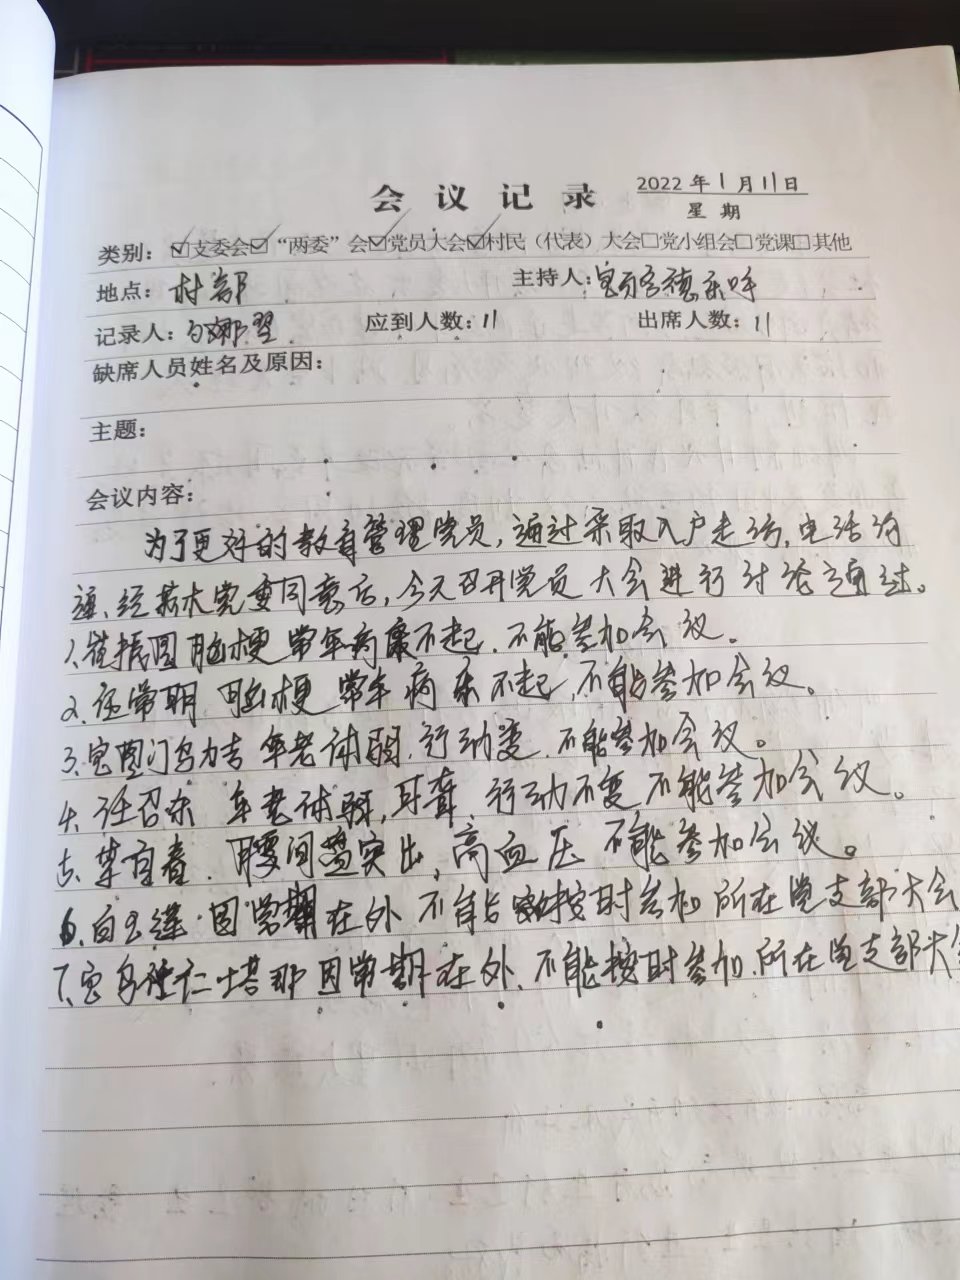 会议记录
2022年1月11日
星期
类别：☑支委会☑“两委”会☑党员大会☑村民（代表）大会□党小组会□党课□其他
地点：村部
主持人：宝
记录人：白娜
应到人数：11
出席人数：11
缺席人员姓名及原因：
主题：
会议内容：
为了更好的教育管理党员，通过采取入户走访，电话沟
通、经苏木党委同意后，今天召开党员大会进行讨论通过。
1、崔振国 脑梗 常年病床不起，不能参加会议。
2、常明 脑梗 常年病床不起，不能参加会议。
3、宝图门乌力吉 年老体弱，行动变，不能参加会议。
4、召东 年老体弱，耳聋，行动不变 不能参加会议。
5、青春，腰间盘突出，高血压 不能参加会议。
6、白玉莲 因常期在外 不能按时参加所在党支部大会
7、宝乌 仁塔那 因常期在外、不能按时参加，所在党支部大会